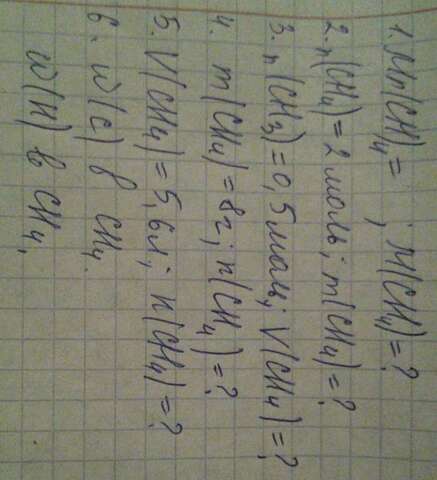 1. Mr(CH)4 = ; M(CH4) = ?
2. n(CH4) = 2 моль; m(CH4) = ?
3. n(CH3) = 0,5 моль; V(CH4) = ?
4. m(CH4) = 8г; n(CH4) = ?
5. V(CH4) = 5,6л; n(CH4) = ?
6. w(c) в CH4.
w(H) в CH4.